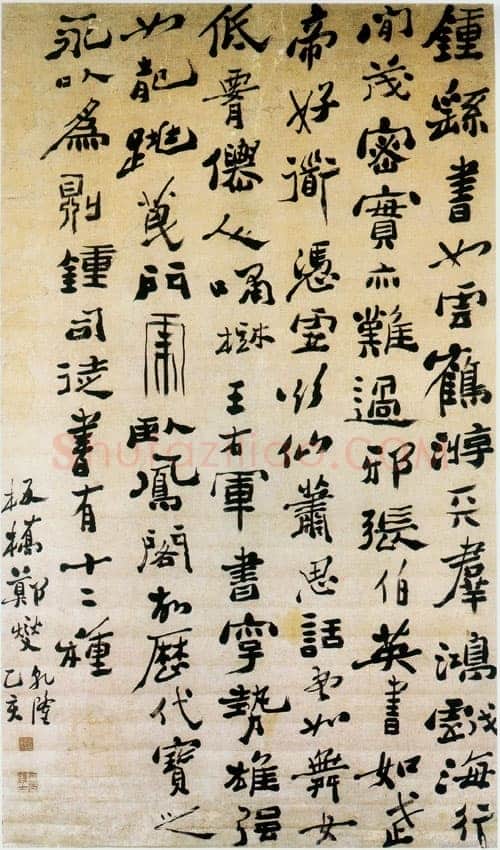 鍾繇書如雲鶴游天羣鴻戲海行
間茂密實亦難過邪張伯英書如武
帝好衜憑虚欲仙蕭思話書如舞女
低霄僊人嘯樹王右軍書字勢雄强
如龍跳萇門虎臥鳳閣故歷代寶之
永以為㝵鍾司徒書有十二種
板橋鄭燮
乾隆乙亥
Shufaziliao.COM